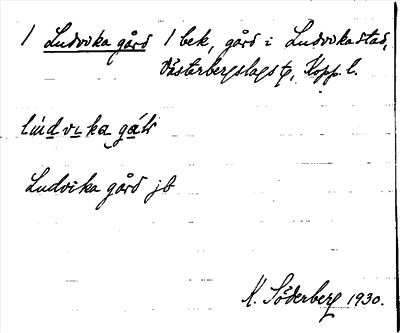 1 Ludvika gård 1 bek, gård i Ludvika stad,
Västerbergslags tg, Kopp. l.
Ludvika gård jb
K. Söderberg 1930.